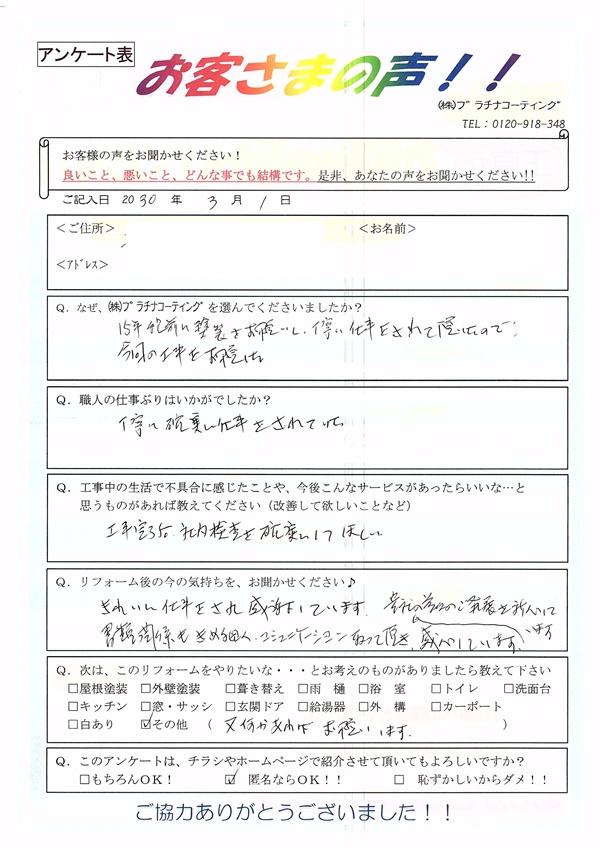 アンケート表
お客さまの声！！
㈱プラチナコーティング
TEL：0120-918-348
お客様の声をお聞かせください！
良いこと、悪いこと、どんな事でも結構です。是非、あなたの声をお聞かせください!!
ご記入日 2030 年 3 月 1 日
＜ご住所＞ ＜お名前＞
＜アドレス＞
Q．なぜ、㈱プラチナコーティングを選んでくださいましたか？
15年程前に塗装をお願いし、丁寧に仕事をされて頂いたので
今回の工事をお願いした
Q．職人の仕事ぶりはいかがでしたか？
丁寧に確実に仕事をされていた。
Q．工事中の生活で不具合に感じたことや、今後こんなサービスがあったらいいな…と
思うものがあれば教えてください（改善して欲しいことなど）
工事完了后、社内検査を確実にしてほしい
Q．リフォーム後の今の気持ちを、お聞かせください♪
きれいに仕事をされ感謝しています。貴社の益々のご発展を祈念して
います
書類関係もきめ細く、コミュニケーションもとって頂き、感心しています。
Q．次は、このリフォームをやりたいな・・・とお考えのものがありましたら教えて下さい
□屋根塗装 □外壁塗装 □葺き替え □雨 樋 □浴 室 □トイレ □洗面台
□キッチン □窓・サッシ □玄関ドア □給湯器 □外 構 □カーポート
□白あり ☑その他 （ 又何かあればお願います。 ）
Q．このアンケートは、チラシやホームページで紹介させて頂いてもよろしいですか？
□もちろんOK！ ☑ 匿名ならOK！！ □ 恥ずかしいからダメ！！
ご協力ありがとうございました！！